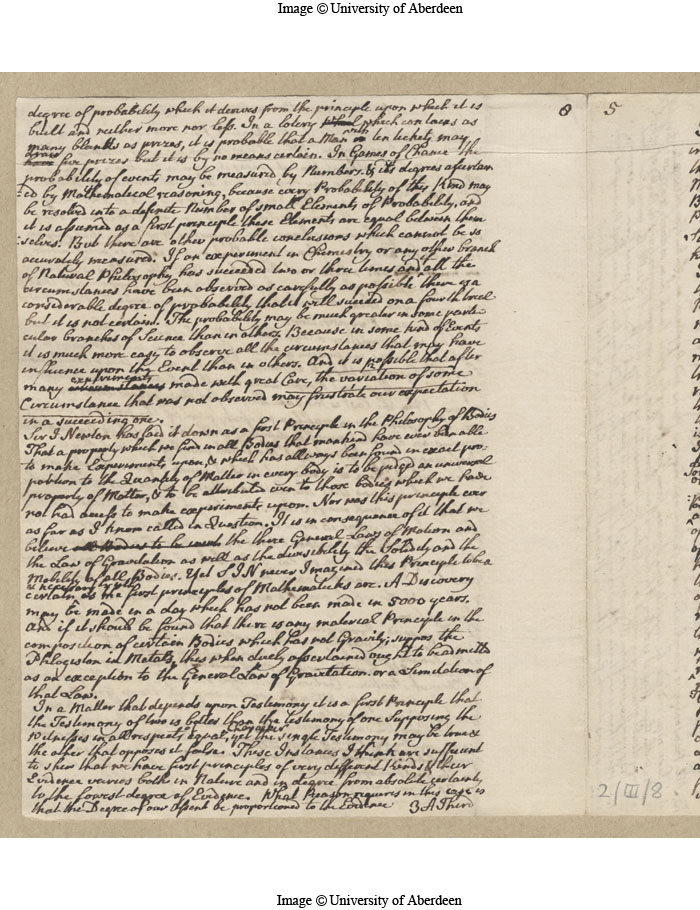 Image © University of Aberdeen
degree of probability which it derives from the principle upon which it is
built and neither more nor less. In a lotery which contains as
many blanks as prizes, it is probable that a Man with ten tickets may
draw five prizes but it is by no means certain. In Games of Chance the
probability of events may be measured by Numbers, & its degrees ascertain
ed by Mathematical reasoning, because every Probability of this Kind may
be resolved into a definite Number of small Elements of Probability, and
it is assumed as a first principle these Elements are equal between them
selves. But there are other probable conclusions which cannot be so
accurately measured. If an experiment in Chemistry or any other branch
of Natural Philosophy has succeeded two or three times and all the
circumstances have been observed as carefully as possible there is a
considerable degree of probability that it will succeed on a fourth trial
but it is not certain. The probability may be much greater in some parti-
cular branches of Science than in others. Because in some kind of Events
it is much more easy to observe all the circumstances that may have
influence upon the Event than in others. And it is possible that after
many experiments made with great Care, the variation of some
Circumstance that was not observed may frustrate our expectation
in a succeeding one.
Sir I Newton has laid it down as a first Principle in the Philosophy of Bodies
That a property which we find in all Bodies that mankind have ever been able
to make Experiments upon, & which has allways been found in exact pro-
portion to the Quantity of Matter in every body is to be judged an universal
property of Matter, & to be attributed even to those bodies which we have
not had access to make experiments upon. Nor was this principle ever
as far as I know called in Question. It is in consequence of it that we
believe all Bodies to be the three General Laws of Motion and
the Law of Gravitation as well as the divisibility the Solidity and the
Mobility of all Bodies. Yet S I N never Imagined this Principle to be a
certain as the first principles of Mathematicks are. A Discovery
may be made in a day which has not been made in 5000 years.
And if it should be found that there is any material Principle in the
composition of certain Bodies which has not Gravity; suppose the
Phlogiston in Metals, this when duely ascertained ought to be admitted
as an exception to the General Law of Gravitation or a Limitation of
that Law.
In a Matter that depends upon Testimony it is a first Principle that
the Testimony of two is better than the testimony of one Supposing the
Witnesses in all respects equal, yet the single Testimony may be true &
the other that opposes it false. These Instances I think are sufficient
to shew that we have first principles of very different Kinds & their
Evidence varies both in Nature and in degree from absolute certainty,
to the lowest degree of Evidence. What Reason requires in this case is
that the Degree of our Assent be proportioned to the Evidence 3 A Third
8
5
2/III/8.
Image © University of Aberdeen